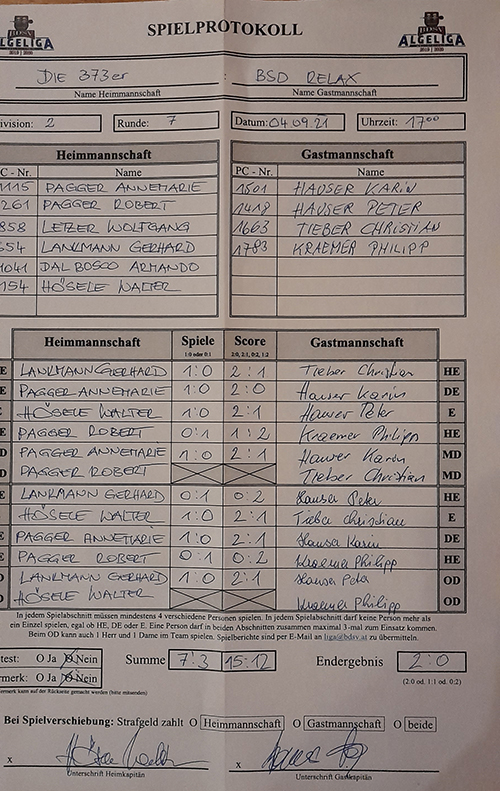 SPIELPROTOKOLL
BDSV
ALGELIGA
2019 | 2020
DIE 373er : BSD RELAX
Name Heimmannschaft Name Gastmannschaft
ivision: 2 Runde: 7 Datum: 04.09.21 Uhrzeit: 17⁰⁰
Heimmannschaft Gastmannschaft
C - Nr. Name PC - Nr. Name
1115 PAGGER ANNEMARIE 1501 HAUSER KARIN
261 PAGGER ROBERT 1418 HAUSER PETER
858 LETZER WOLFGANG 1663 TIEBER CHRISTIAN
654 LANKMANN GERHARD 1783 KRAEMER PHILIPP
1041 DAL BOSCO ARMANDO
154 HÖSELE WALTER
Heimmannschaft Spiele Score Gastmannschaft
1:0 oder 0:1 2:0, 2:1, 0:2, 1:2
E LANKMANN GERHARD 1:0 2:1 Tieber Christian HE
E PAGGER ANNEMARIE 1:0 2:0 Hauser Karin DE
HÖSELE WALTER 1:0 2:1 Hauser Peter E
E PAGGER ROBERT 0:1 1:2 Kraemer Philipp HE
D PAGGER ANNEMARIE 1:0 2:1 Hauser Karin MD
D PAGGER ROBERT Tieber Christian MD
E LANKMANN GERHARD 0:1 0:2 Hauser Peter HE
HÖSELE WALTER 1:0 2:1 Tieber Christian E
E PAGGER ANNEMARIE 1:0 2:1 Hauser Karin DE
E PAGGER ROBERT 0:1 0:2 Kraemer Philipp HE
D LANKMANN GERHARD 1:0 2:1 Hauser Peter OD
D HÖSELE WALTER Kraemer Philipp OD
In jedem Spielabschnitt müssen mindestens 4 verschiedene Personen spielen. In jedem Spielabschnitt darf keine Person mehr als
ein Einzel spielen, egal ob HE, DE oder E. Eine Person darf in beiden Abschnitten zusammen maximal 3-mal zum Einsatz kommen.
Beim OD kann auch 1 Herr und 1 Dame im Team spielen. Spielberichte sind per E-Mail an liga@bdsv.at zu übermitteln.
test: O Ja O Nein Summe 7:3 15:12 Endergebnis 2:0
merk: O Ja O Nein (2:0 od. 1:1 od. 0:2)
ermerk kann auf der Rückseite gemacht werden (bitte mitsenden)
Bei Spielverschiebung: Strafgeld zahlt O Heimmannschaft O Gastmannschaft O beide
x x
Unterschrift Heimkapitän Unterschrift Gastkapitän